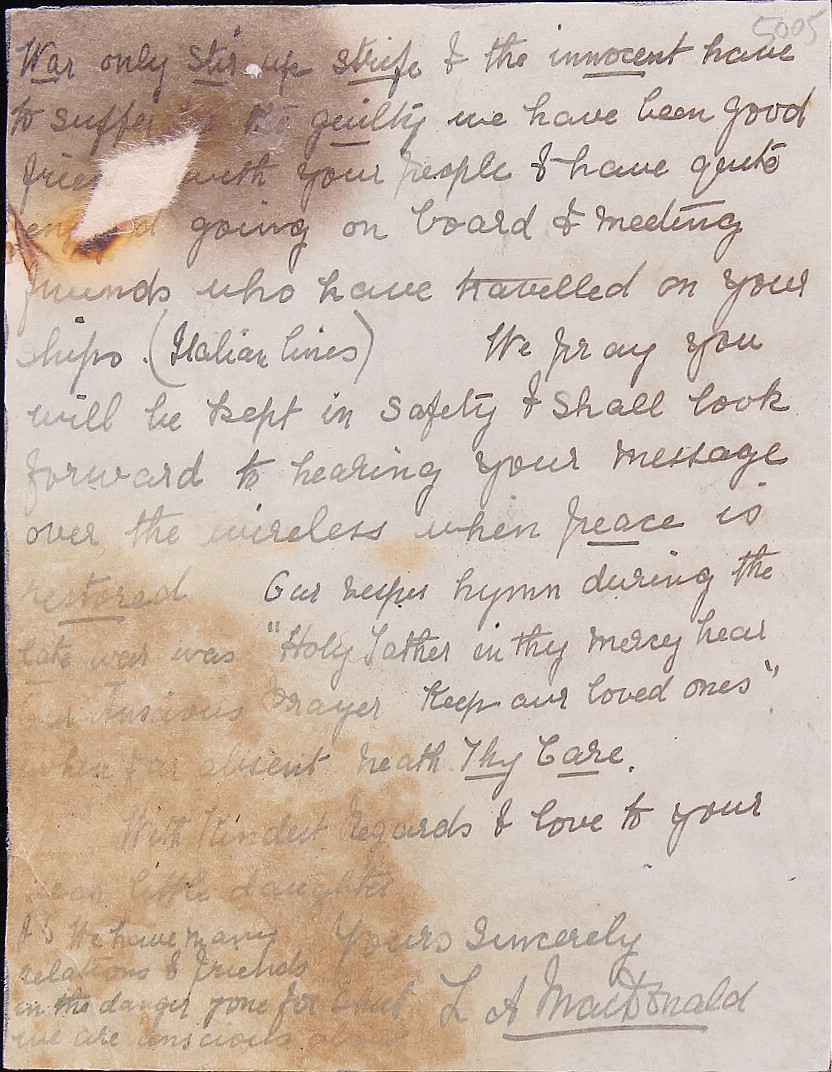 5005
War only stir up strife & the innocent have
to suffer the guilty we have been good
with your people & have quite
going on board & meeting
friends who have travelled on your
ships. (Italian lines) We pray you
will be kept in safety & shall look
forward to hearing your message
over the wireless when peace is
restored Our vesper hymn during the
late war was "Holy Father in thy mercy hear
our Anscious Prayer Keep our loved ones"
when far absent neath Thy Care.
With Kindest Regards & love to your
dear little daughter
Yours Sincerely
L A MacDonald
P S We have many
relations & friends
in the danger zone for
we are conscious